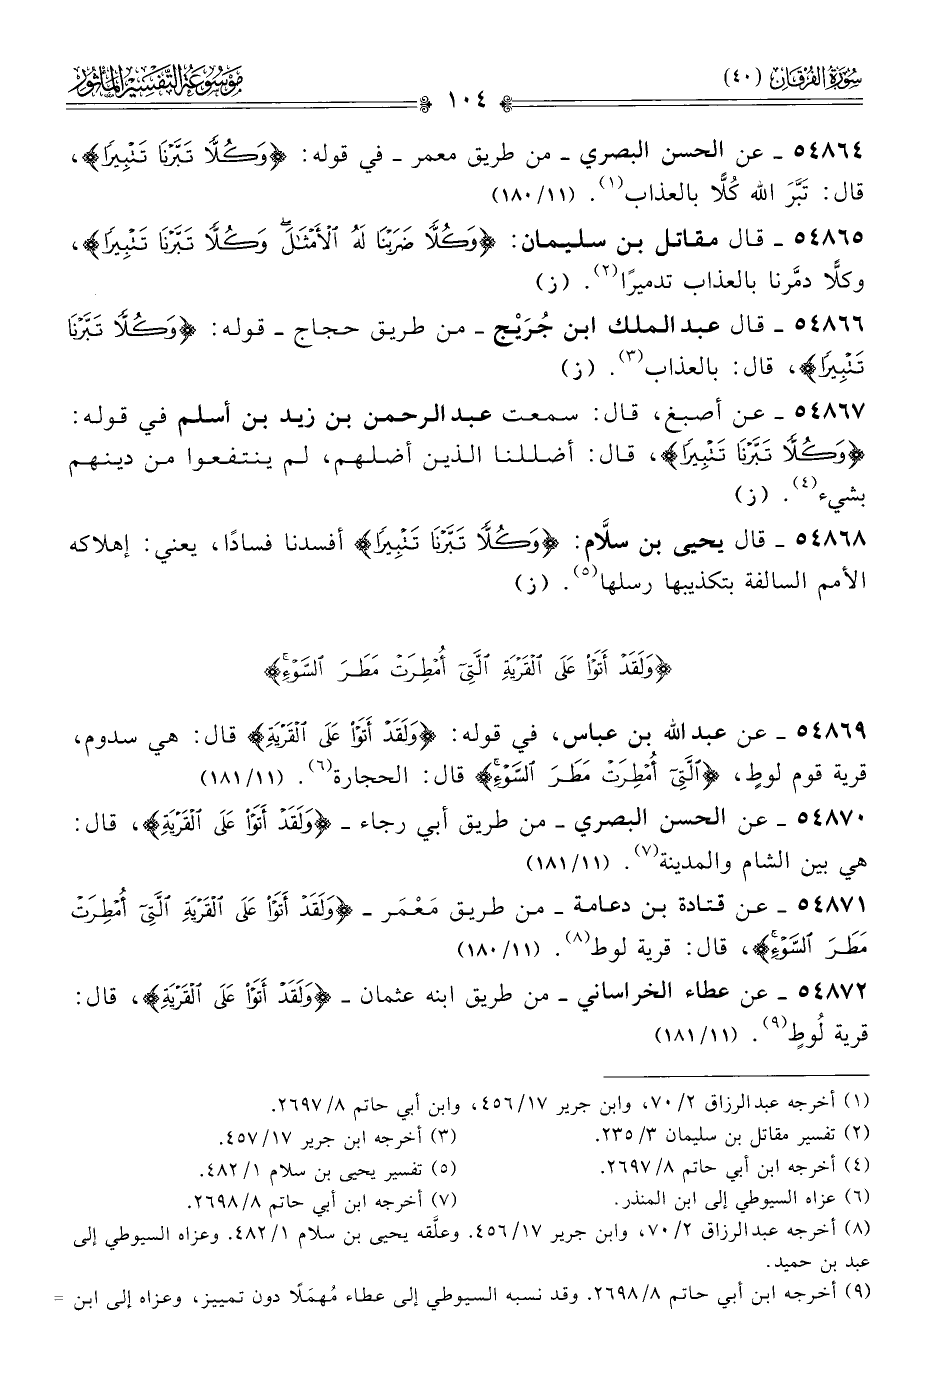 سُورَةُ الفُرْقَانِ (٤٠)
١٠٤
مَوْسُوعَةُ التَّفْسِيرِ المَأْثُور
٥٤٨٦٤ ـ عن الحسن البصري ـ من طريق معمر ـ في قوله: ﴿وَكُلًّا تَبَّرْنَا تَتْبِيرًا﴾،
قال: تَبَّرَ الله كُلًّا بالعذاب(١). (١١/ ١٨٠)
٥٤٨٦٥ ـ قال مقاتل بن سليمان: ﴿وَكُلًّا ضَرَبْنَا لَهُ ٱلْأَمْثَٰلَ ۖ وَكُلًّا تَبَّرْنَا تَتْبِيرًا﴾،
وكلًّا دمَّرنا بالعذاب تدميرًا(٢). (ز)
٥٤٨٦٦ ـ قال عبدالملك ابن جُرَيْج ـ من طريق حجاج ـ قوله: ﴿وَكُلًّا تَبَّرْنَا
تَتْبِيرًا﴾، قال: بالعذاب(٣). (ز)
٥٤٨٦٧ ـ عن أصبغ، قال: سمعت عبدالرحمن بن زيد بن أسلم في قوله:
﴿وَكُلًّا تَبَّرْنَا تَتْبِيرًا﴾، قال: أضللنا الذين أضلهم، لم ينتفعوا من دينهم
بشيء(٤). (ز)
٥٤٨٦٨ ـ قال يحيى بن سلَّام: ﴿وَكُلًّا تَبَّرْنَا تَتْبِيرًا﴾ أفسدنا فسادًا، يعني: إهلاكه
الأمم السالفة بتكذيبها رسلها(٥). (ز)
﴿وَلَقَدْ أَتَوْا۟ عَلَى ٱلْقَرْيَةِ ٱلَّتِىٓ أُمْطِرَتْ مَطَرَ ٱلسَّوْءِ ۚ﴾
٥٤٨٦٩ ـ عن عبدالله بن عباس، في قوله: ﴿وَلَقَدْ أَتَوْا۟ عَلَى ٱلْقَرْيَةِ﴾ قال: هي سدوم،
قرية قوم لوطٍ، ﴿ٱلَّتِىٓ أُمْطِرَتْ مَطَرَ ٱلسَّوْءِ ۚ﴾ قال: الحجارة(٦). (١١/ ١٨١)
٥٤٨٧٠ ـ عن الحسن البصري ـ من طريق أبي رجاء ـ ﴿وَلَقَدْ أَتَوْا۟ عَلَى ٱلْقَرْيَةِ﴾، قال:
هي بين الشام والمدينة(٧). (١١/ ١٨١)
٥٤٨٧١ ـ عن قتادة بن دعامة ـ من طريق مَعْمَر ـ ﴿وَلَقَدْ أَتَوْا۟ عَلَى ٱلْقَرْيَةِ ٱلَّتِىٓ أُمْطِرَتْ
مَطَرَ ٱلسَّوْءِ ۚ﴾، قال: قرية لوط(٨). (١١/ ١٨٠)
٥٤٨٧٢ ـ عن عطاء الخراساني ـ من طريق ابنه عثمان ـ ﴿وَلَقَدْ أَتَوْا۟ عَلَى ٱلْقَرْيَةِ﴾، قال:
قرية لُوطٍ(٩). (١١/ ١٨١)
(١) أخرجه عبدالرزاق ٢/ ٧٠، وابن جرير ١٧/ ٤٥٦، وابن أبي حاتم ٨/ ٢٦٩٧.
(٢) تفسير مقاتل بن سليمان ٣/ ٢٣٥. (٣) أخرجه ابن جرير ١٧/ ٤٥٧.
(٤) أخرجه ابن أبي حاتم ٨/ ٢٦٩٧. (٥) تفسير يحيى بن سلام ١/ ٤٨٢.
(٦) عزاه السيوطي إلى ابن المنذر. (٧) أخرجه ابن أبي حاتم ٨/ ٢٦٩٨.
(٨) أخرجه عبدالرزاق ٢/ ٧٠، وابن جرير ١٧/ ٤٥٦. وعلَّقه يحيى بن سلام ١/ ٤٨٢. وعزاه السيوطي إلى
عبد بن حميد.
(٩) أخرجه ابن أبي حاتم ٨/ ٢٦٩٨. وقد نسبه السيوطي إلى عطاء مُهمَلًا دون تمييز، وعزاه إلى ابن =